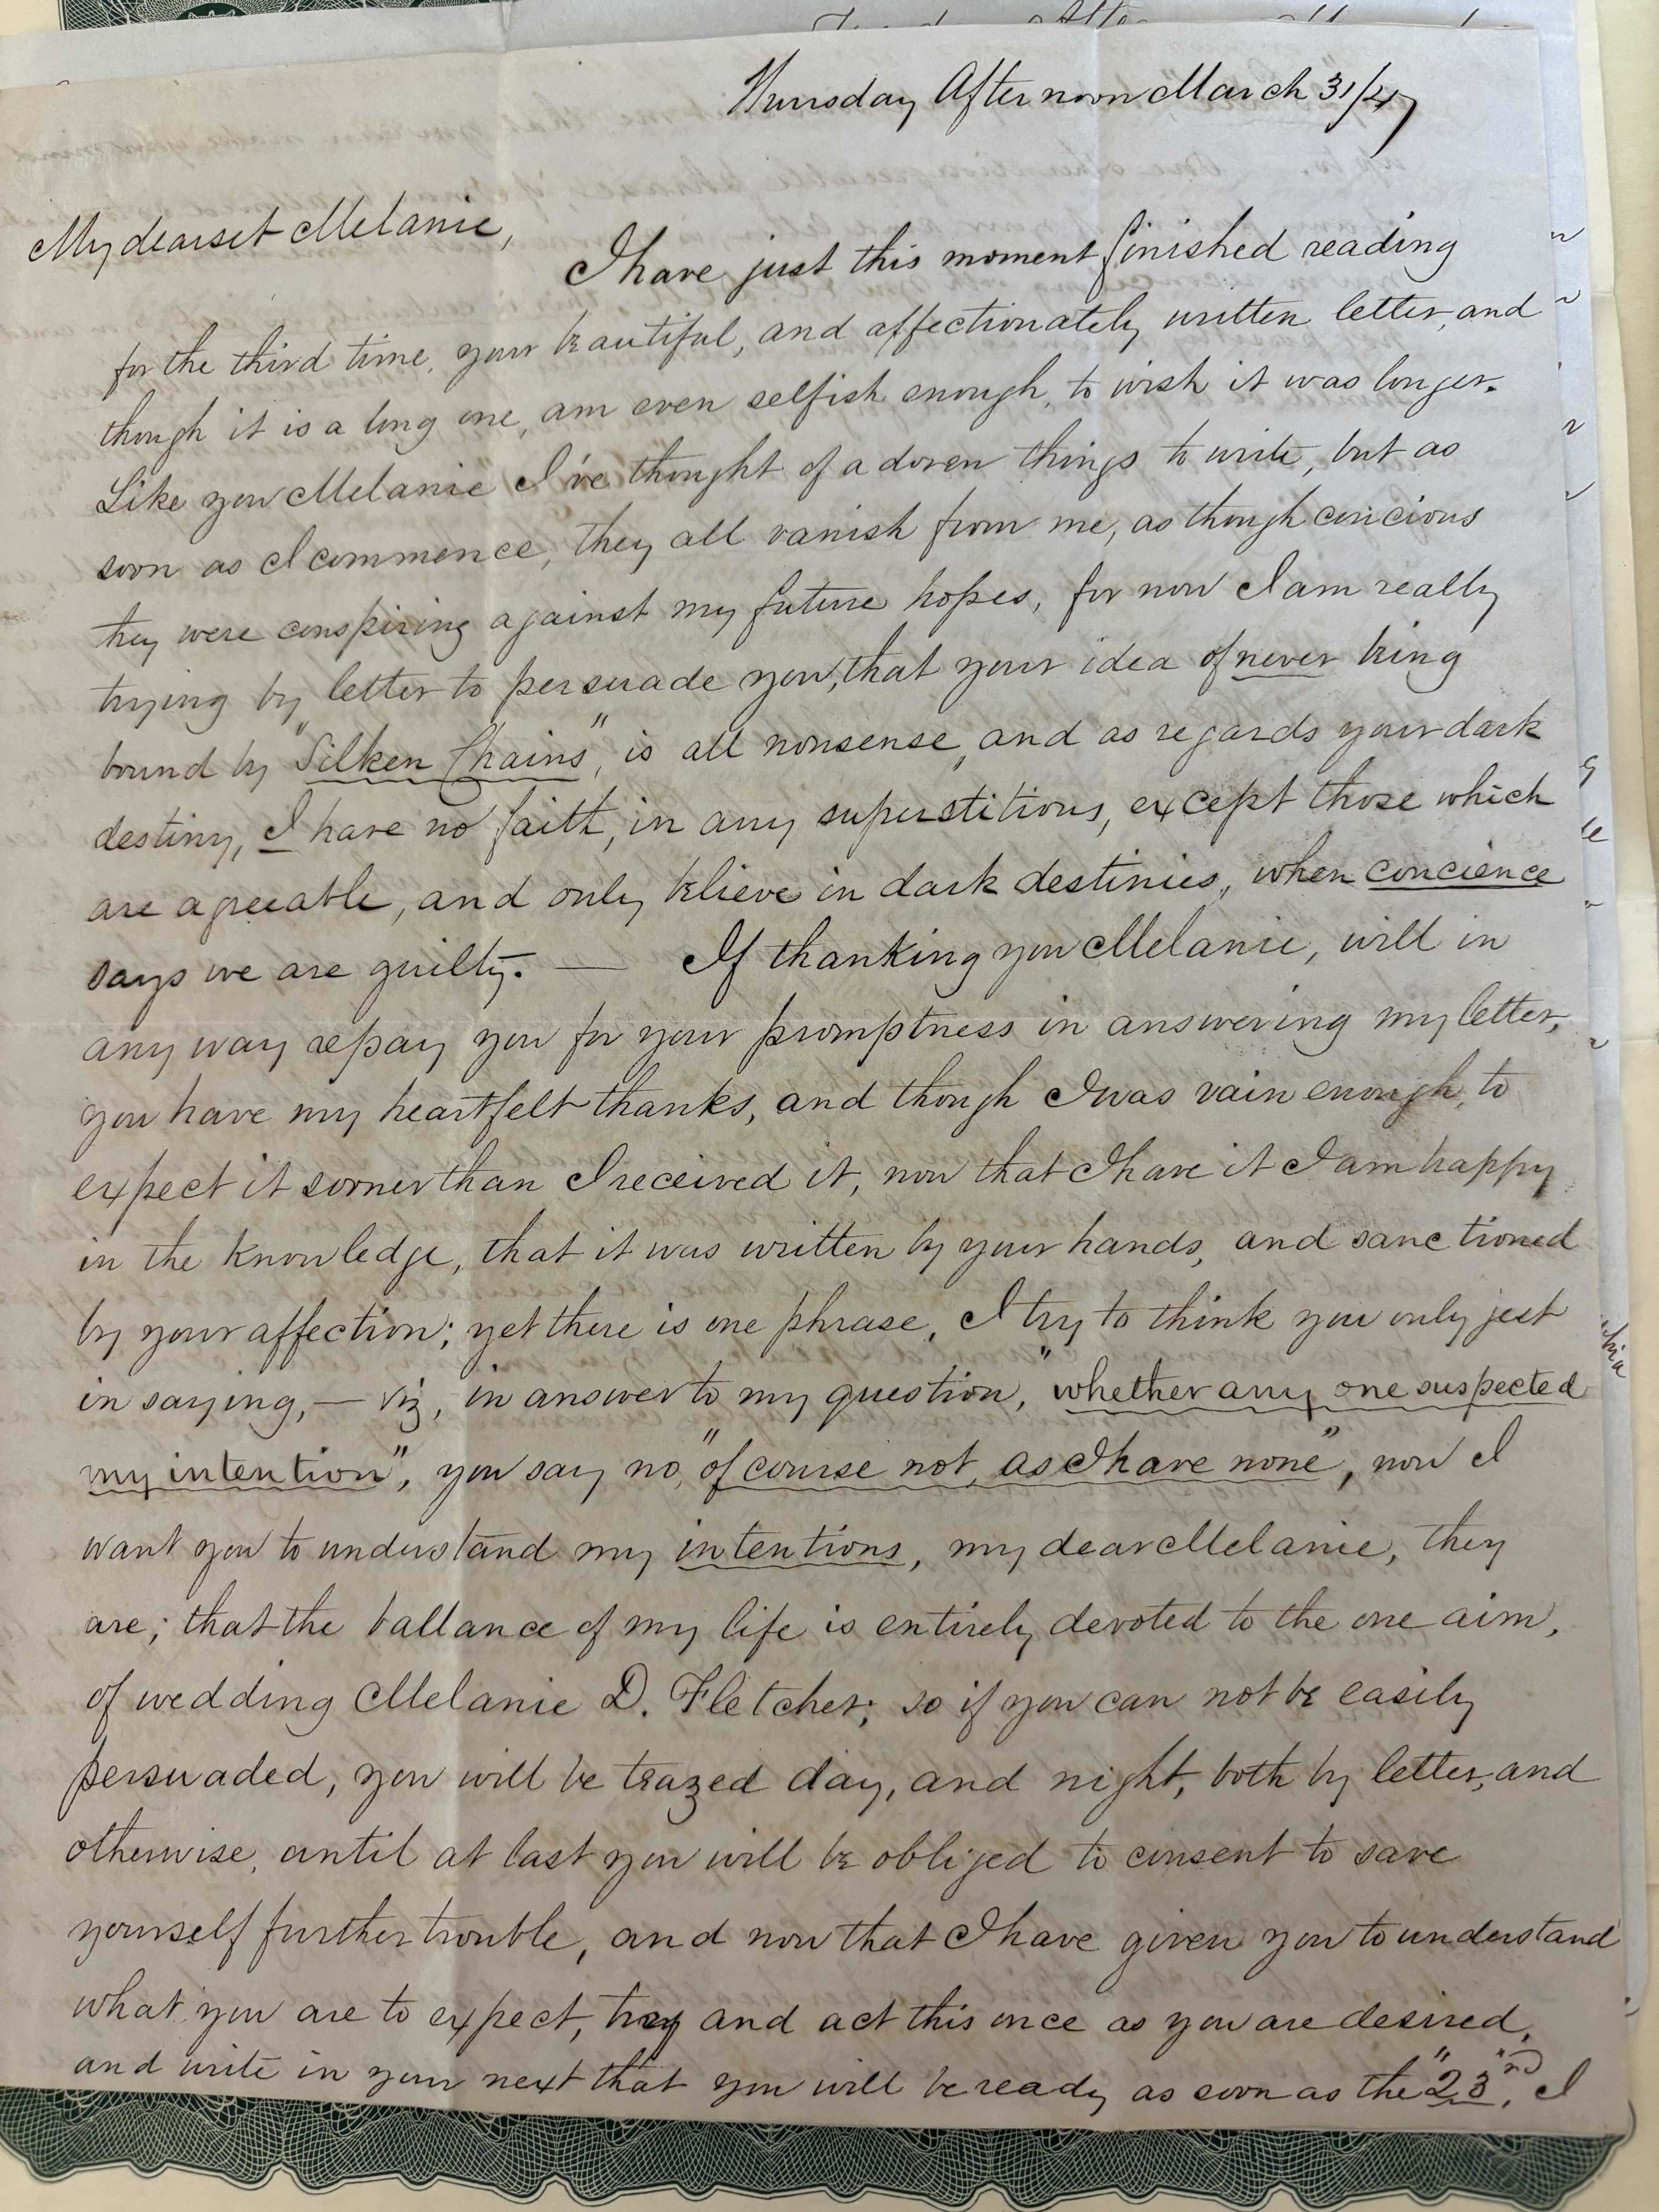 Thursday Afternoon March 31/47
My dearset Melanie,
I have just this moment finished reading
for the third time, your beautiful, and affectionately written letter, and
though it is a long one, am even selfish enough, to wish it was longer.
Like you Melanie I've thought of a dozen things to write, but as
soon as I commence, they all vanish from me, as though concious
they were conspiring against my future hopes, for now I am really
trying by letter to persuade you, that your idea of never being
bound by "Silken Chains", is all nonsense, and as regards your dark
destiny, I have no faith, in any superstitions, except those which
are agreeable, and only believe in dark destinies, when concience
says we are guilty. — If thanking you Melanie, will in
any way repay you for your promptness in answering my letter,
you have my heartfelt thanks, and though I was vain enough, to
expect it sooner than I received it, now that I have it I am happy
in the knowledge, that it was written by your hands, and sanctioned
by your affection; yet there is one phrase, I try to think you only jest
in saying, — viz, in answer to my question, "whether any one suspected
my intention", you say no, "of course not, as I have none", now I
want you to understand my intentions, my dear Melanie, they
are; that the ballance of my life is entirely devoted to the one aim,
of wedding Melanie D. Fletcher; so if you can not be easily
persuaded, you will be teazed day, and night, both by letter, and
otherwise, until at last you will be obliged to consent to save
yourself further trouble, and now that I have given you to understand
what you are to expect, try and act this once as you are desired,
and write in your next that you will be ready as soon as the "23rd", I